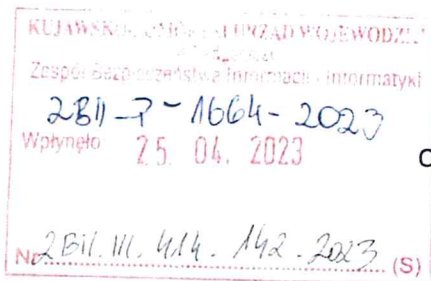 URZĄD WOJEWÓDZKI
Zespół Bezpieczeństwa Informacji i Informatyki
ZBII-P-1664-2023
Wpłynęło 25. 04. 2023
Nr ZBII.III.414.142.2023 (S)